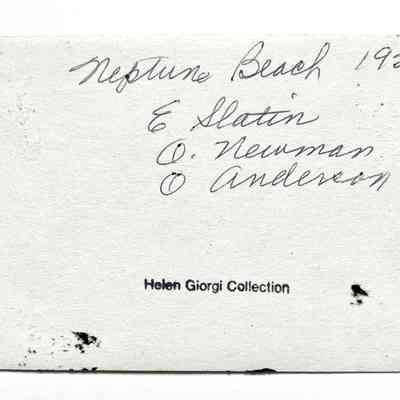 Neptune Beach 192
E Slatin
O. Newman
O Anderson
Helen Giorgi Collection